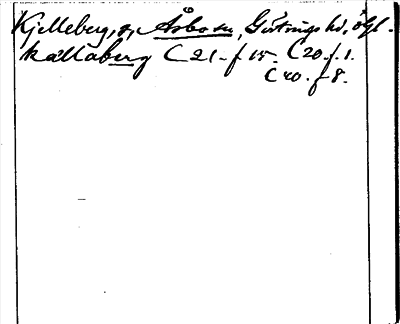 Kjelleberg, g, Åsbo sn, Göstrings hd, Ögl.
kællaberg C 21. f 15. C 20. f. 1.
C 20. f 8.